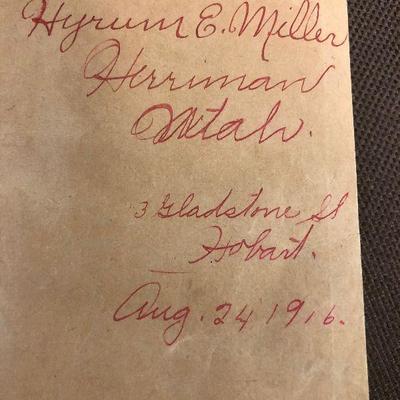 Hyrum E. Miller
Herriman
Utah.
3 Gladstone St
Hobart.
Aug. 24 1916.